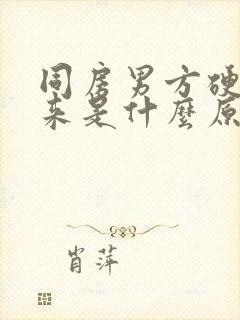 同房男方硬
来是什麼原
肖萍